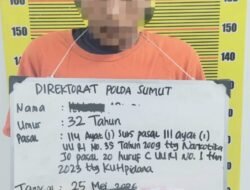 DIREKTORAT POLDA SUMUT
Nama :
Umur : 32 Tahun
Pasal : 114 Ayat (1) Subs pasal 111 ayat (1)
UU RI No. 35 Tahun 2009 ttg Narkotika
Jo pasal 20 huruf C UU RI No. 1 thn
2023 ttg KUHPidana
25 Mei 2026